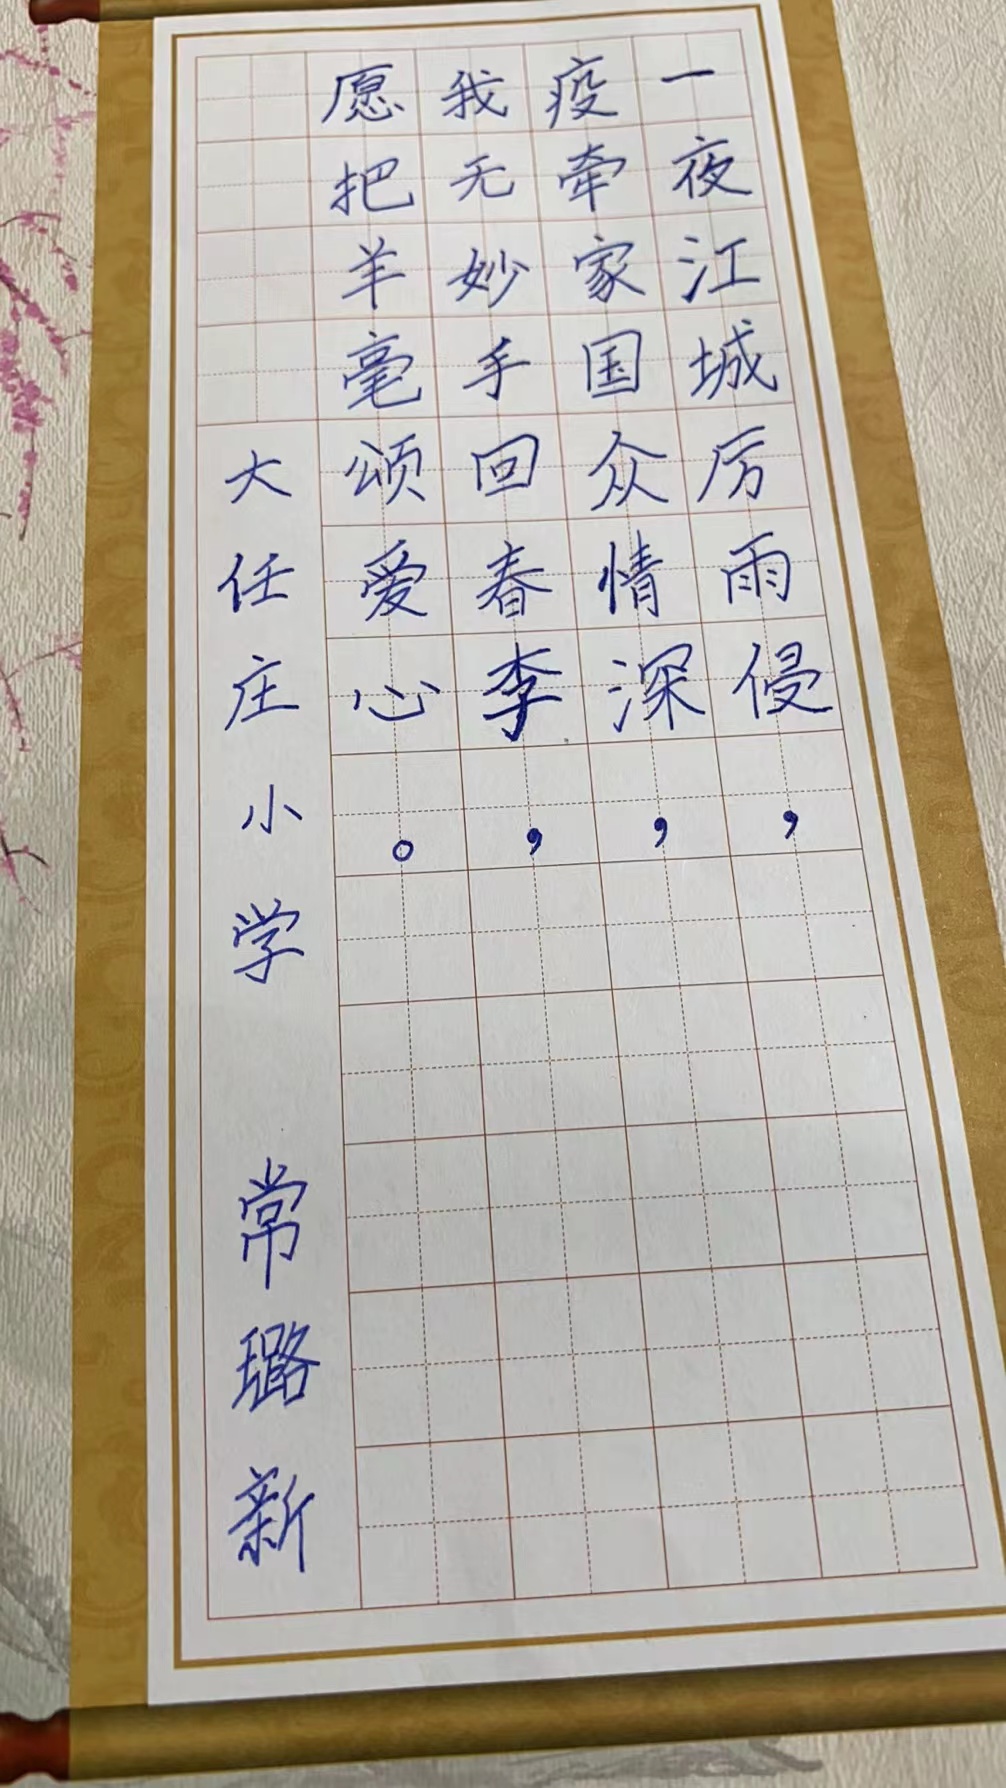 一夜江城厉雨侵，
疫牵家国众情深，
我无妙手回春李，
愿把羊毫颂爱心。
大任庄小学 常璐新